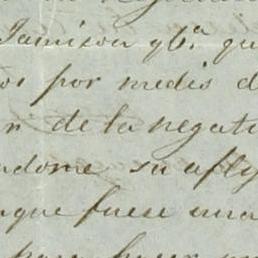 Jamison y Ca. qu
os por medio d
n de la negati
ndome su afly
nque fuese una
para hacer